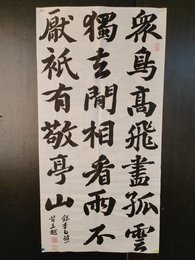 衆鳥高飛盡孤雲
獨去閒相看兩不
厭祇有敬亭山
錄李白詩